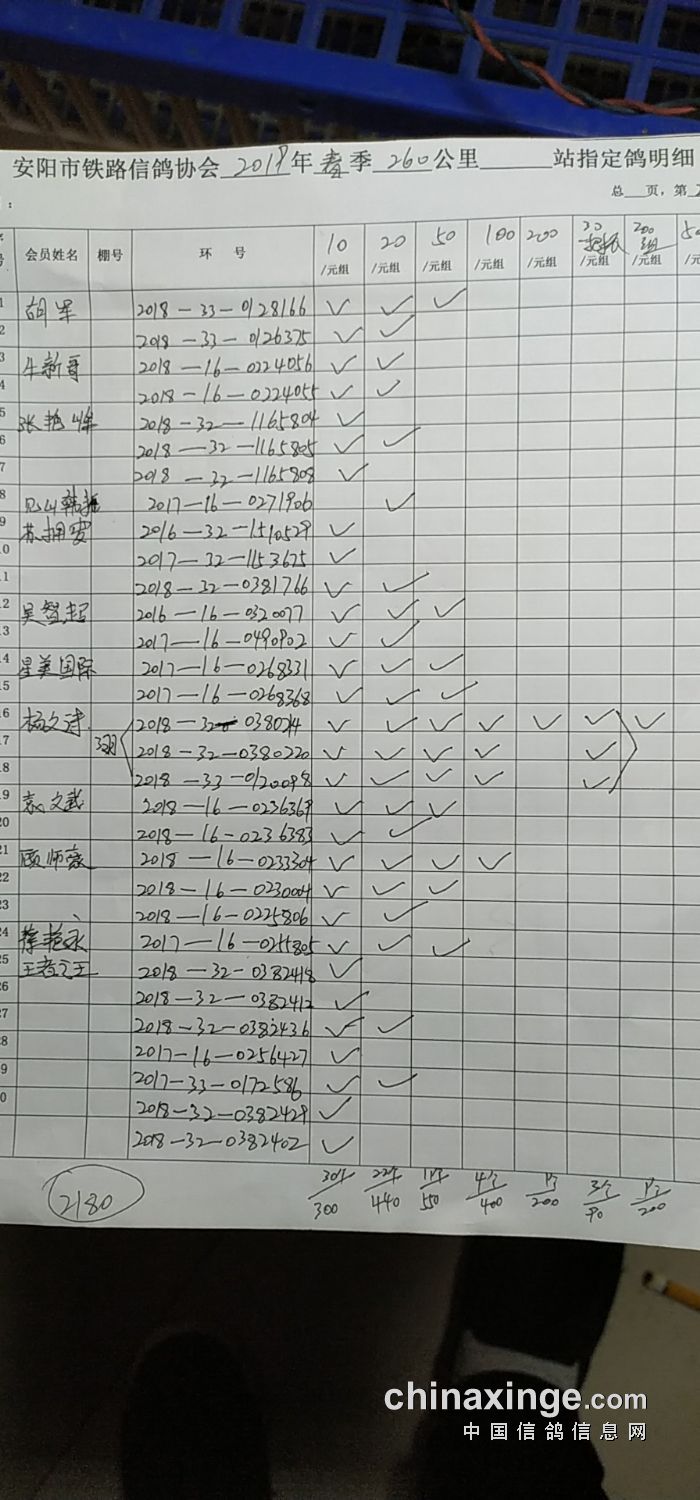 安阳市铁路信鸽协会 2019年 春季 260公里 站指定鸽明细
总 页,第
会员姓名 棚号 环 号 10/元组 20/元组 50/元组 100/元组 200 /元组 30 /元组 200组 /元组 /元组
1 胡军 2018-33-0128166 ✓ ✓ ✓
2 2018-33-0126375 ✓ ✓
3 牛新哥 2018-16-0224056 ✓ ✓
4 2018-16-0224055 ✓ ✓
5 张艳峰 2018-32-1165804 ✓
6 2018-32-1165805 ✓ ✓
7 2018-32-1165808 ✓
8 2017-16-0271906 ✓
9 苏拥安 2016-32-1510529 ✓
10 2017-32-1153675 ✓
11 2018-32-0381766 ✓ ✓
12 吴智超 2016-16-0320077 ✓ ✓ ✓
13 2017-16-0490902 ✓ ✓
14 星美国际 2017-16-0268331 ✓ ✓ ✓
15 2017-16-0268368 ✓ ✓ ✓
16 杨文清 2018-32 ✓ ✓ ✓ ✓ ✓ ✓ ✓
17 3羽 2018-32-0380220 ✓ ✓ ✓ ✓ ✓
18 2018-33-0120098 ✓ ✓ ✓ ✓ ✓
19 袁文武 2018-16-0236369 ✓ ✓ ✓
20 2018-16-0236383 ✓ ✓
21 顾师豪 2018-16-0233304 ✓ ✓ ✓ ✓
22 2018-16-0230004 ✓ ✓ ✓
23 2018-16-0225806 ✓ ✓
24 2017-16-0255805 ✓ ✓ ✓
25 王者之王 2018-32-0382418 ✓
26 2018-32-0382412 ✓
27 2018-32-0382436 ✓ ✓
28 2017-16-0256427 ✓
9 2017-33-0172586 ✓ ✓
0 2018-32-0382429 ✓
2018-32-0382402 ✓
30个 22个 11个 4个 1个 3个 1个
2180 300 440 550 400 200 90 200
chinaxinge.com
中国信鸽信息网